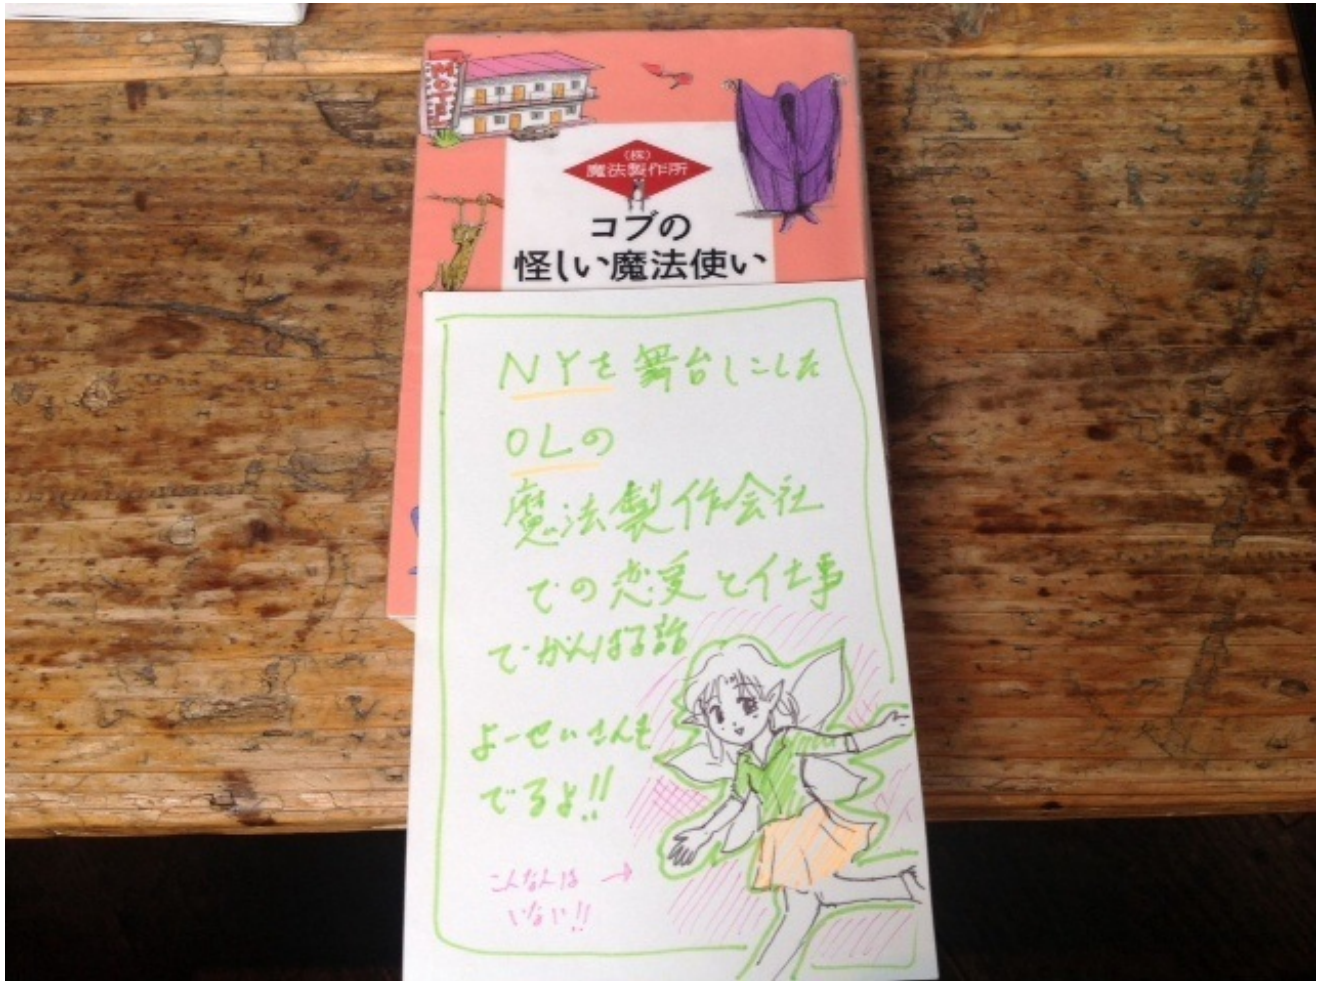 MOTEL
(株)
魔法製作所
コブの
怪しい魔法使い
NYを舞台にした
OLの
魔法製作会社
での恋愛と仕事
でがんばる話
よーせいさんも
でるよ!!
こんなんは →
いない!!